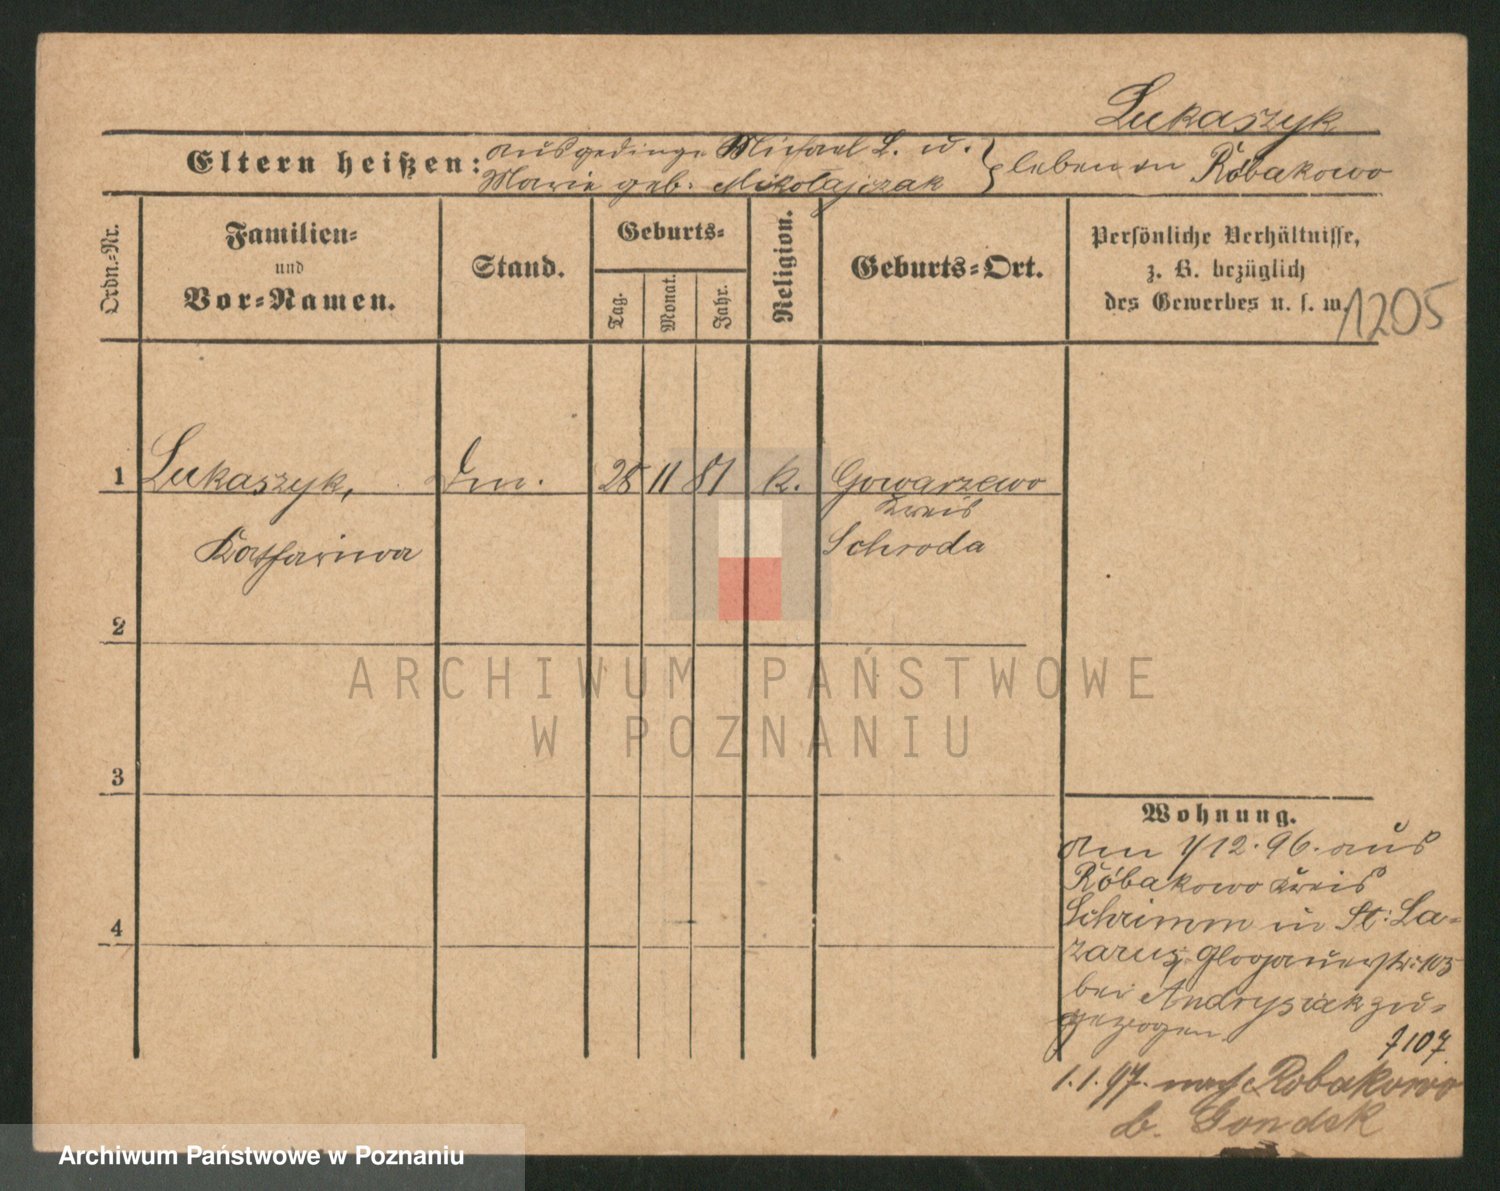 Lukaszyk
Eltern heißen: Ausgedinge Michael L. u.
Marie geb. Mikolajczak } leben in Róbakowo
Ordn.-Nr.
Familien-
und
Vor-Namen.
Stand.
Geburts-
Tag.
Monat.
Jahr.
Religion.
Geburts-Ort.
Persönliche Verhältnisse,
z. B. bezüglich
des Gewerbes u. s. w.
1205
1 Lukaszyk, Dm. 28 11 81 k. Gowarzewo
Kreis
Katharina Schroda
2
3
4
Wohnung.
Am 1/12.96. aus
Róbakowo Kreis
Schrimm in St. La-
zarus, Glogauerstr. 105
bei Andrysiak zu-
gezogen.
7107
1.1.97. nach Robakowo
b. Gondek
ARCHIWUM PAŃSTWOWE
W POZNANIU
Archiwum Państwowe w Poznaniu